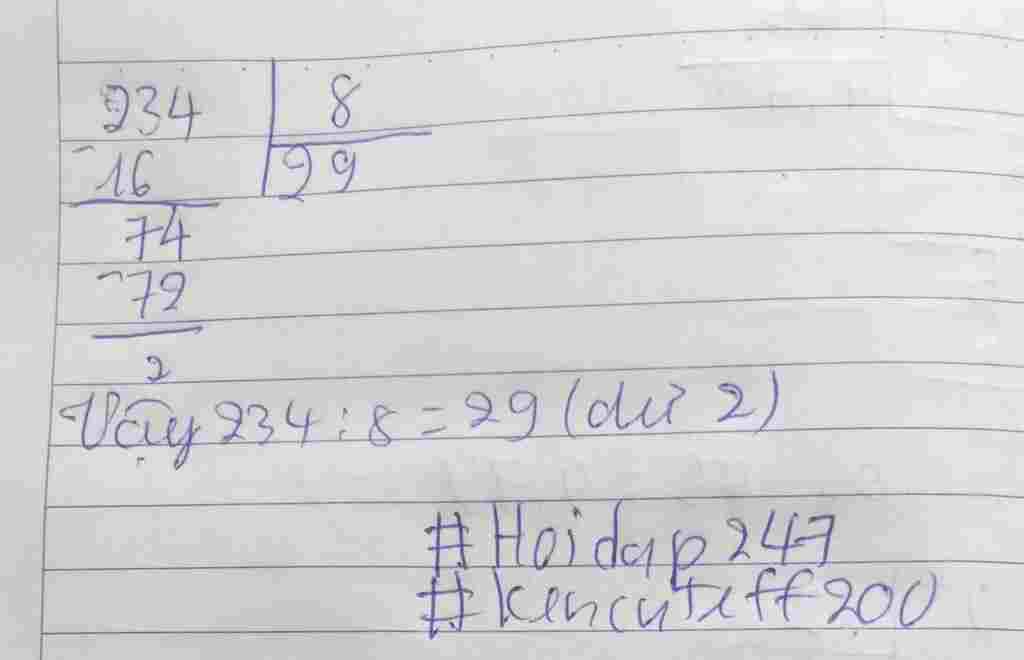 234 8
-16 29
74
-72
2
Vậy 234 : 8 = 29 (dư 2)
#Hoidap247
#kencuteff200